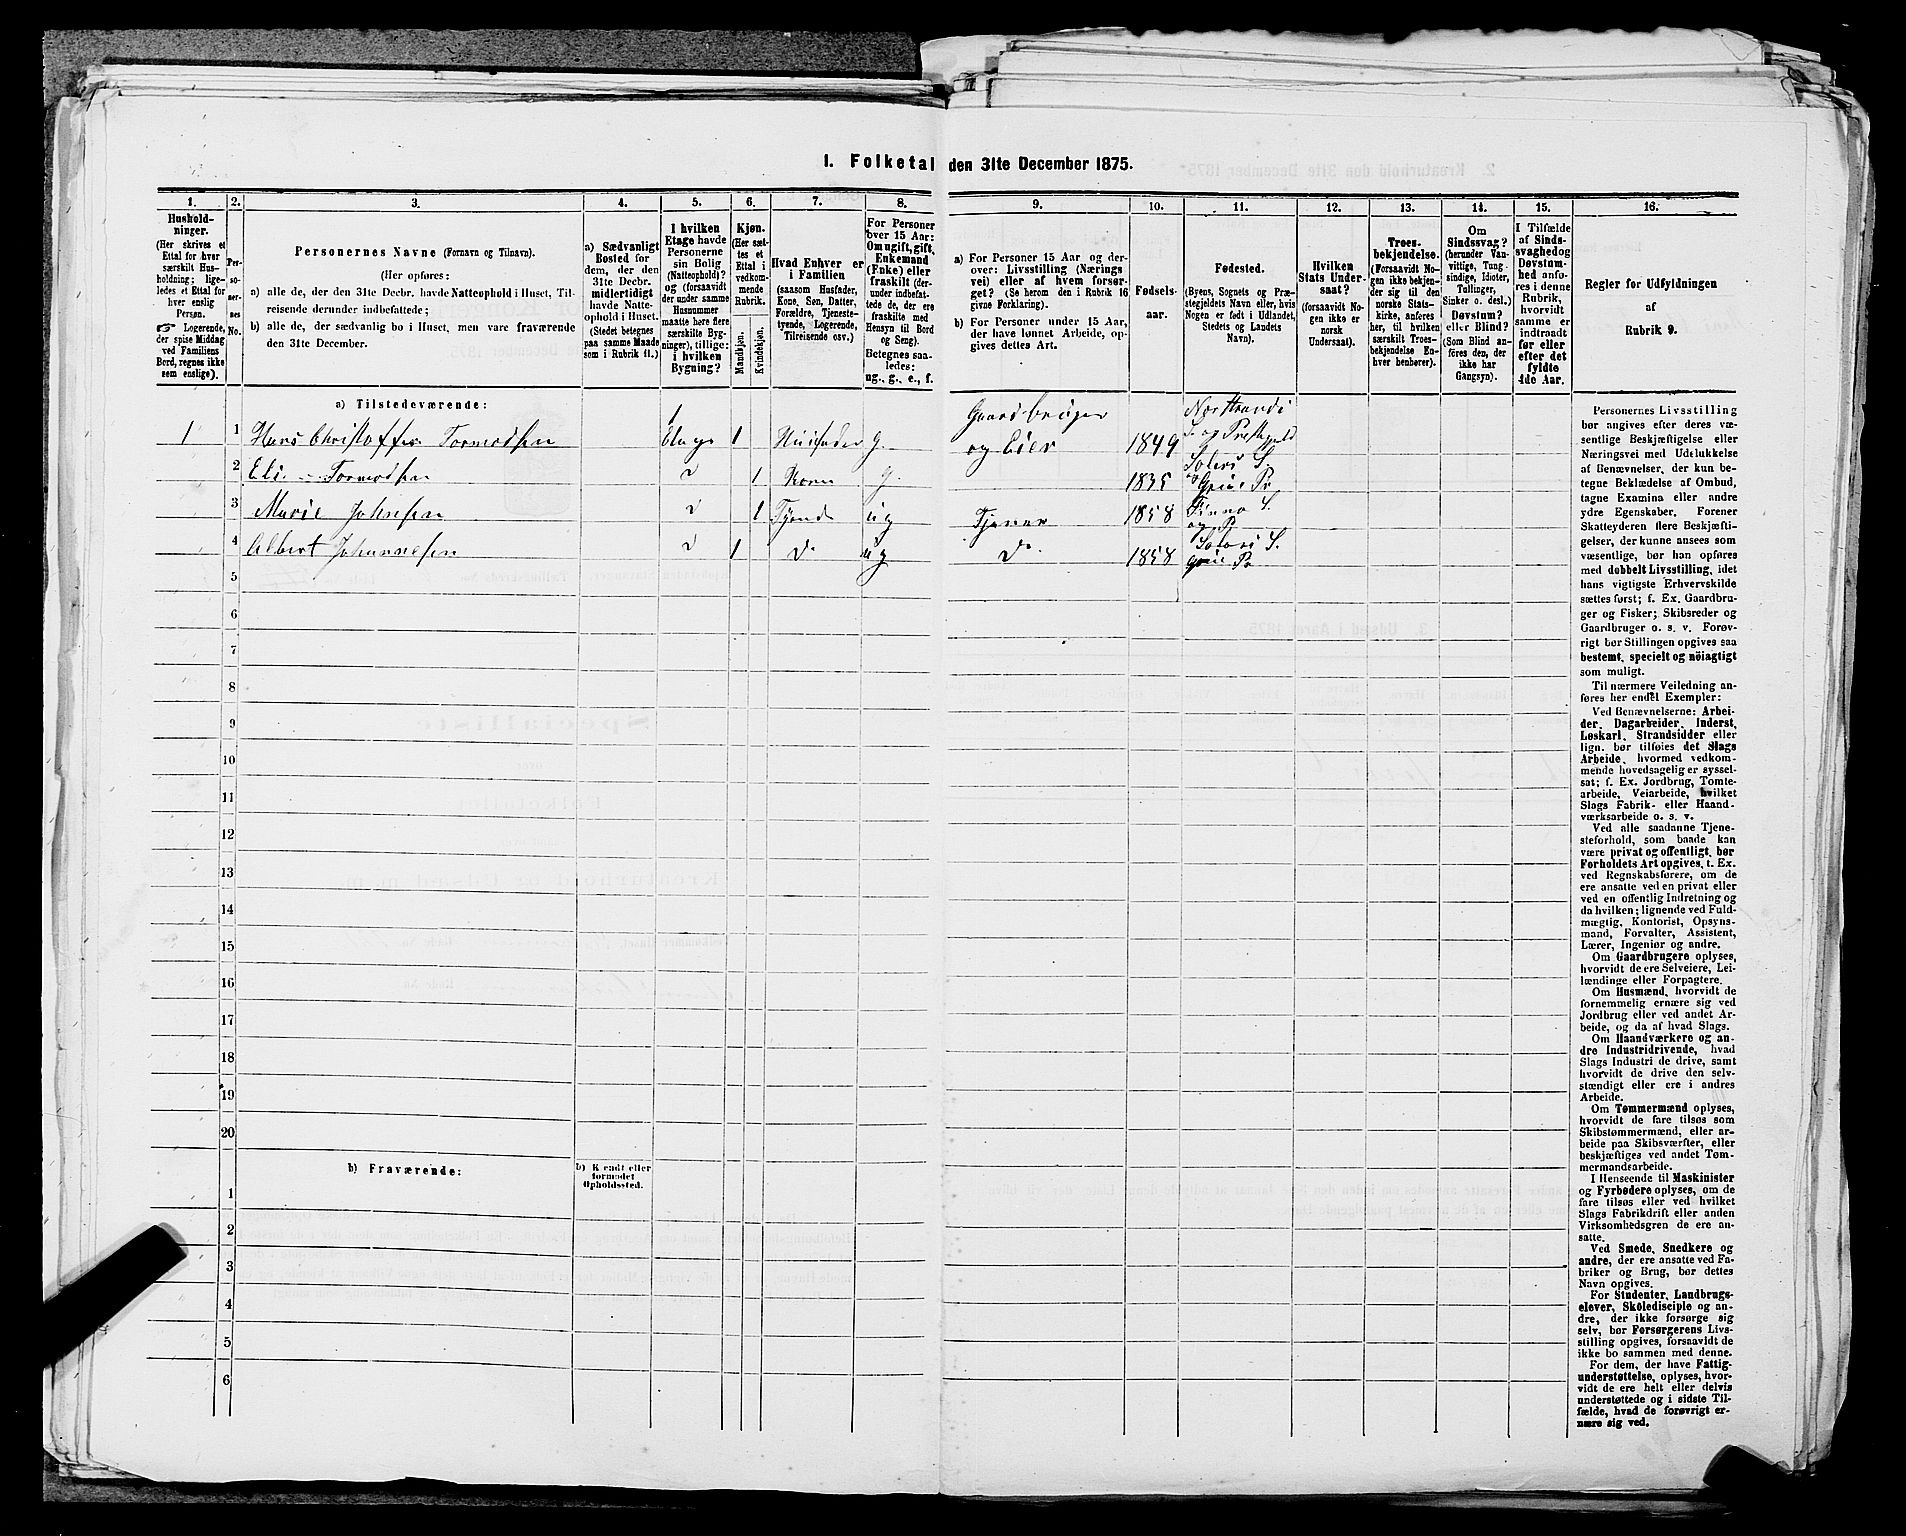 I. Folketal den 31te December 1875.
1.
Hushold-
ninger.
(Her skrives et
Ettal for hver
særskilt Hus-
holdning; lige-
ledes et Ettal for
hver enslig
Person.
☞ Logerende,
der spise Middag
ved Familiens
Bord, regnes ikke
som enslige).
2.
Per-
so-
ner-
nes
No.
3.
Personernes Navne (Fornavn og Tilnavn).
(Her opføres:
a) alle de, der den 31te Decbr. havde Natteophold i Huset, Til-
reisende derunder indbefattede;
b) alle de, der sædvanlig bo i Huset, men vare fraværende
den 31te December.
4.
a) Sædvanligt
Bosted for
dem, der den
31te Decbr.
midlertidigt
havde Natte-
ophold i Huset.
(Stedet betegnes
paa samme Maade
som i Rubrik 11.)
5.
I hvilken
Etage havde
Personerne
sin Bolig
(Natteophold)?
og (forsaavidt
der under samme
Husnummer
maatte høre flere
særskilte Byg-
ninger), tillige:
i hvilken
Bygning?
6.
Kjøn.
(Her sæt-
tes et
Ettal i
vedkom-
mende
Rubrik.
Mandkjøn.
Kvindekjøn.
7.
Hvad Enhver er
i Familien
(saasom Husfader,
Kone, Søn, Datter,
Forældre, Tjeneste-
tyende, Logerende,
Tilreisende osv.)
8.
For Personer
over 15 Aar:
Om ugift, gift,
Enkemand
(Enke) eller
fraskilt (der-
under indbefat-
tede de, der ere
fraskilte med
Hensyn til Bord
og Seng).
Betegnes saa-
ledes:
ug., g., e., f.
9.
a) For Personer 15 Aar og der-
over: Livsstilling (Nærings
vei) eller af hvem forsør-
get? (Se herom den i Rubrik 16
givne Forklaring).
b) For Personer under 15 Aar,
der have lønnet Arbeide, op-
gives dettes Art.
10.
Fødsels-
aar.
11.
Fødested.
(Byens, Sognets og Præ-
stegjeldets Navn eller, hvis
Nogen er født i Udlandet,
Stedets og Landets
Navn).
12.
Hvilken
Stats Under-
saat?
(forsaavidt No-
gen ikke er
norsk
Undersaat).
13.
Troes-
bekjendelse.
(Forsaavidt No-
gen ikke bekjen-
der sig til den
norske Stats-
kirke, anføres
her, til hvilken
særskilt Troes-
bekjendelse En-
hver henhører).
14.
Om
Sindssvag?
(herunder Van-
vittige, Tung-
sindige, Idioter,
Tullinger,
Sinker o. desl.)
Døvstum?
eller Blind?
(Som Blind an-
føres den, der
ikke har
Gangsyn).
15.
I Tilfælde
af Sinds-
svaghed og
Døvstum-
hed anfø-
res i denne
Rubrik,
hvorvidt
samme er
indtraadt
før eller
efter det
fyldte
4de Aar.
16.
Regler for Udfyldningen
af
Rubrik 9.
a) Tilstedeværende:
1 1 Hans Christoffer Tormodsen 1 Etage 1 Husfader g. Gaardbruger og Eier 1849 Nordstrands S. og Prestegjeld
2 Eli Tormodsen 1 Kone g. 1835 Solørs S. og Grue Pr
3 Marie Johnsen 1 Tyende ug Tjener 1858 S. og Pr.
4 Albert Johannesen 1 do ug do. 1858 Solørs S. Grue Pr
5
6
7
8
9
10
11
12
13
14
15
16
17
18
19
20
b) Fraværende:
b) Kjendt eller
formodet
Opholdssted.
1
2
3
4
5
6
Personernes Livsstilling
bør angives efter deres væ-
sentlige Beskjæftigelse eller
Næringsvei med Udelukkelse
af Benævnelser, der kun be-
tegne Beklædelse af Ombud,
tagne Examina eller andre
ydre Egenskaber. Forener
Skatteyderen flere Beskjæfti-
gelser, der kunne ansees som
væsentlige, bør han opføres
med dobbelt Livsstilling, idet
hans vigtigste Erhvervskilde
sættes først; f. Ex. Gaardbru-
ger og Fisker; Skibsreder og
Gaardbruger o. s. v. Forøv-
rigt bør Stillingen opgives saa
bestemt, specielt og nöiagtigt
som muligt.
Til nærmere Veiledning an-
føres her endel Exempler:
Ved Benævnelserne: Arbei-
der, Dagarbeider, Inderst,
Løskarl, Strandsidder eller
lign. bør tilføies det Slags
Arbeide, hvormed vedkom-
mende hovedsagelig er syssel-
sat; f. Ex. Jordbrug, Tomte-
arbeide, Veiarbeide, hvilket
Slags Fabrik- eller Haand-
værksarbeide o. s. v.
Ved alle saadanne Tjene-
steforhold, som baade kan
være privat og offentligt, bør
Forholdets Art opgives, t. Ex.
ved Regnskabsførere, om de
ere ansatte ved en privat eller
ved en offentlig Indretning og
da hvilken; lignende ved Fuld-
mægtig, Kontorist, Opsyns-
mand, Forvalter, Assistent,
Lærer, Ingeniør og andre.
Om Gaardbrugere oplyses,
hvorvidt de ere Selveiere, Lei-
lændinge eller Forpagtere.
Om Husmænd, hvorvidt de
fornemmelig ernære sig ved
Jordbrug eller ved andet Ar-
beide, og da af hvad Slags.
Om Haandværkere og an-
dre Industridrivende, hvad
Slags Industri de drive, samt
hvorvidt de drive den selv-
stændigt eller ere i andres
Arbeide.
Om Tømmermænd oplyses,
hvorvidt de fare tilsøs som
Skibstømmermænd, eller ar-
beide paa Skibsværfter, eller
beskjæftiges ved andet Tøm-
mermandarbeide.
I Henseende til Maskinister
og Fyrbødere oplyses, om de
fare tilsøs eller ved hvilket
Slags Fabrikdrift eller anden
Virksomhedsgren de ere an-
satte.
Ved Smede, Snedkere og
andre, der ere ansatte ved Fa-
briker og Brug, bør dettes
Navn opgives.
For Studenter, Landbrugs-
elever, Skoledisciple og an-
dre, der ikke forsørge sig
selv, bør Forsørgerens Livs-
stilling opgives, forsaavidt de
ikke bo sammen med denne.
For dem, der have Fattig-
understøttelse, oplyses, hvor-
vidt de ere helt eller delvis
understøttede og i sidste Til-
fælde, hvad de forøvrigt er-
nære sig ved.